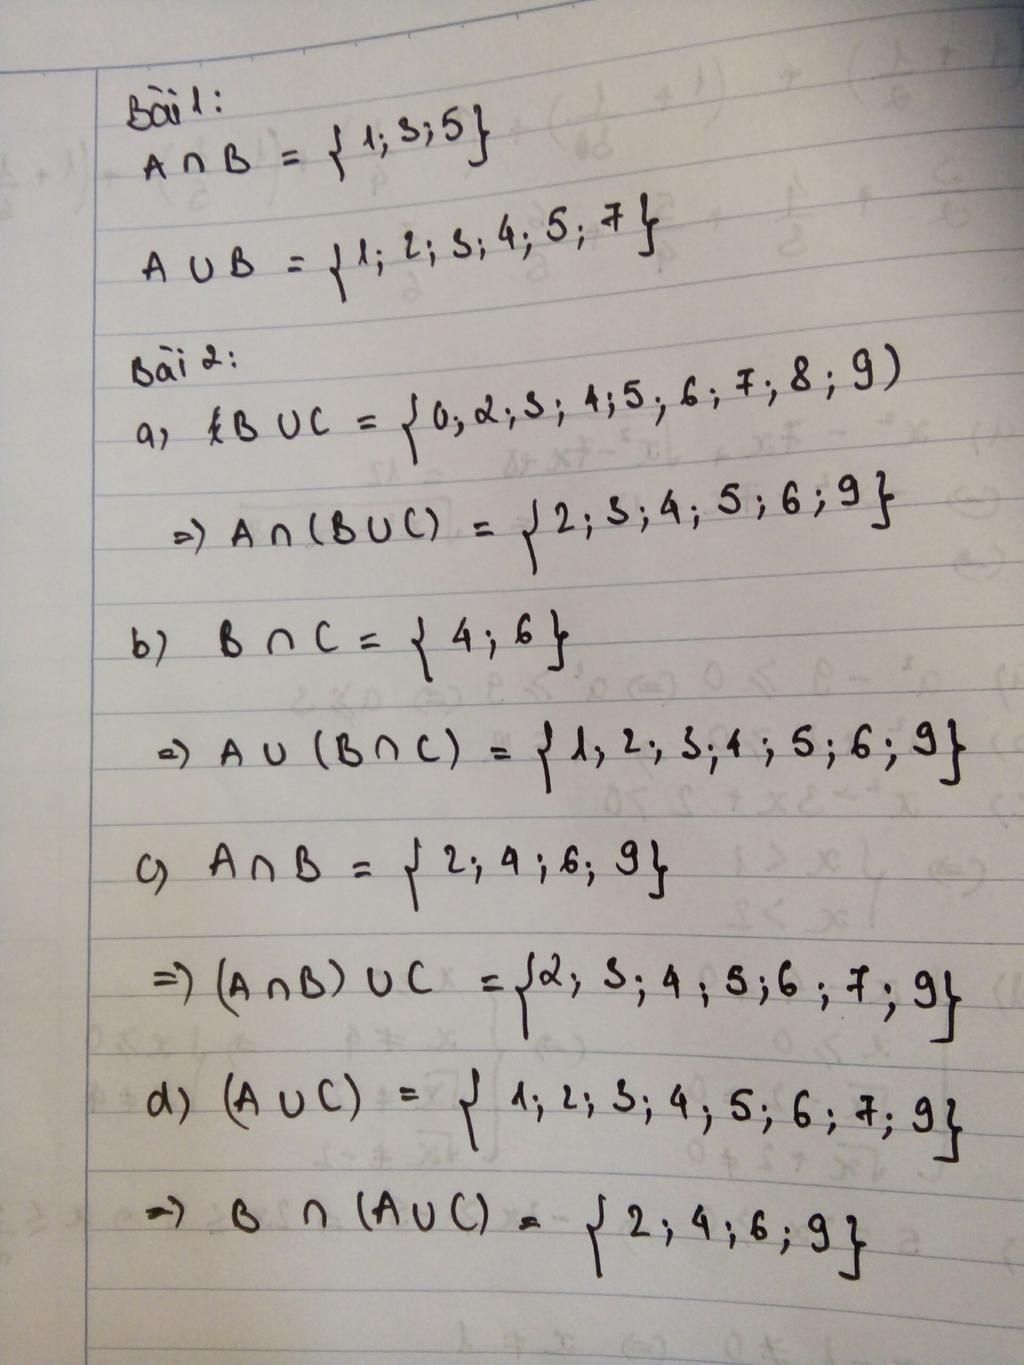 Bài 1:
A ∩ B = {1; 3; 5}
A ∪ B = {1; 2; 3; 4; 5; 7}
Bài 2:
a) B ∪ C = {0; 2; 3; 4; 5; 6; 7; 8; 9)
=> A ∩ (B ∪ C) = {2; 3; 4; 5; 6; 9}
b) B ∩ C = {4; 6}
=> A ∪ (B ∩ C) = {1; 2; 3; 4; 5; 6; 9}
c) A ∩ B = {2; 4; 6; 9}
=> (A ∩ B) ∪ C = {2; 3; 4; 5; 6; 7; 9}
d) (A ∪ C) = {1; 2; 3; 4; 5; 6; 7; 9}
=> B ∩ (A ∪ C) = {2; 4; 6; 9}